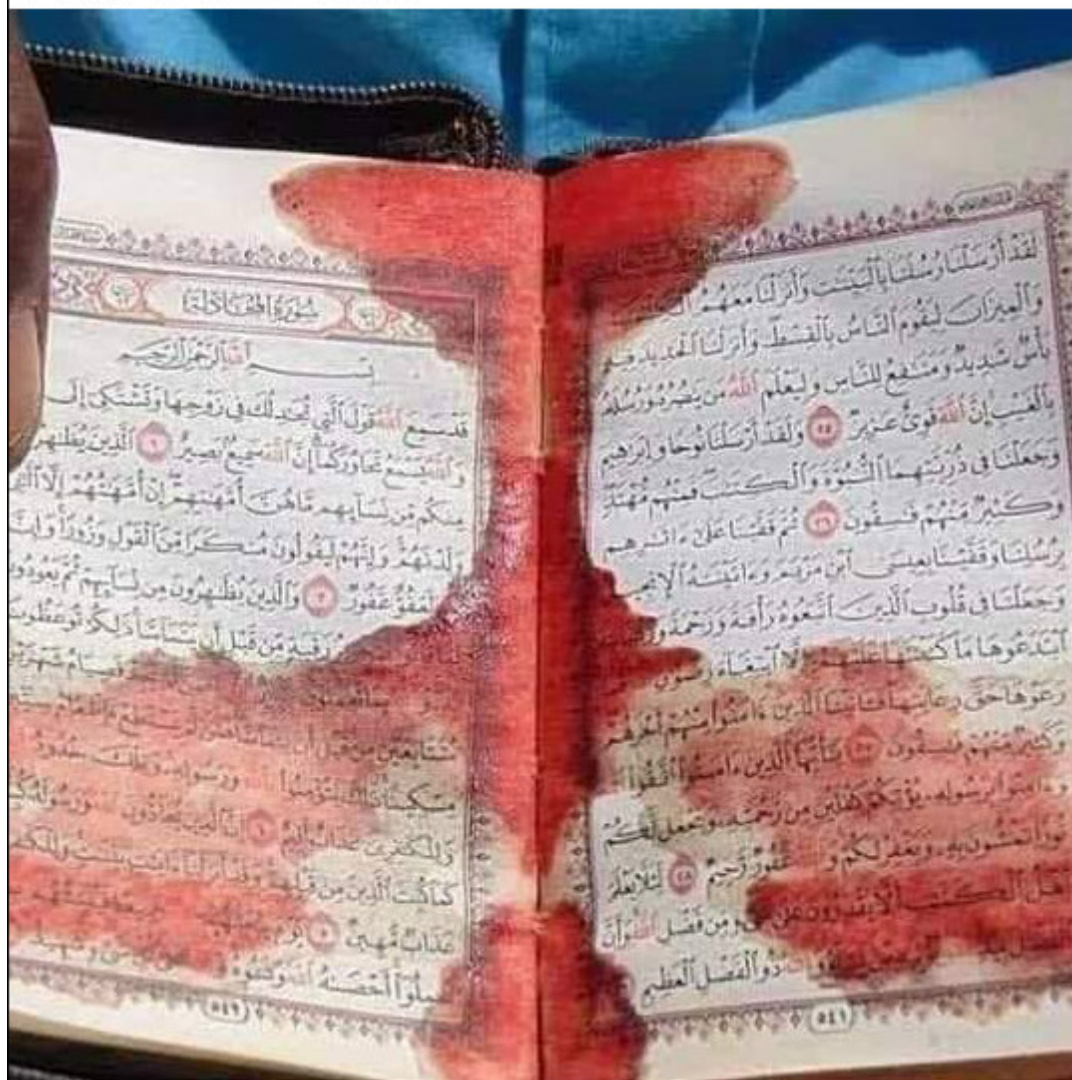 لَقَدْ أَرْسَلْنَا رُسُلَنَا بِالْبَيِّنَٰتِ وَأَنزَلْنَا مَعَهُمُ
وَالْمِيزَانَ لِيَقُومَ النَّاسُ بِالْقِسْطِ وَأَنزَلْنَا الْحَدِيدَ فِيهِ
بَأْسٌ شَدِيدٌ وَمَنَٰفِعُ لِلنَّاسِ وَلِيَعْلَمَ اللَّهُ مَن يَنصُرُهُ وَرُسُلَهُ
بِالْغَيْبِ إِنَّ اللَّهَ قَوِيٌّ عَزِيزٌ ٢٥ وَلَقَدْ أَرْسَلْنَا نُوحًا وَإِبْرَٰهِيمَ
وَجَعَلْنَا فِي ذُرِّيَّتِهِمَا النُّبُوَّةَ وَالْكِتَٰبَ فَمِنْهُم مُّهْتَدٍ
وَكَثِيرٌ مِّنْهُمْ فَٰسِقُونَ ٢٦ ثُمَّ قَفَّيْنَا عَلَىٰ ءَاثَٰرِهِم
بِرُسُلِنَا وَقَفَّيْنَا بِعِيسَى ابْنِ مَرْيَمَ وَءَاتَيْنَٰهُ الْإِنجِيلَ
وَجَعَلْنَا فِي قُلُوبِ الَّذِينَ اتَّبَعُوهُ رَأْفَةً وَرَحْمَةً
ابْتَدَعُوهَا مَا كَتَبْنَٰهَا عَلَيْهِمْ إِلَّا ابْتِغَاءَ رِضْوَٰنِ
رَعَوْهَا حَقَّ رِعَايَتِهَا فَـَٔاتَيْنَا الَّذِينَ ءَامَنُوا مِنْهُمْ أَجْرَهُمْ
وَكَثِيرٌ مِّنْهُمْ فَٰسِقُونَ ٢٧ يَٰٓأَيُّهَا الَّذِينَ ءَامَنُوا اتَّقُوا
وَءَامِنُوا بِرَسُولِهِ يُؤْتِكُمْ كِفْلَيْنِ مِن رَّحْمَتِهِ وَيَجْعَل لَّكُمْ
نُورًا تَمْشُونَ بِهِ وَيَغْفِرْ لَكُمْ غَفُورٌ رَّحِيمٌ ٢٨ لِّئَلَّا يَعْلَمَ
أَهْلُ الْكِتَٰبِ أَلَّا يَقْدِرُونَ عَلَىٰ مِّن فَضْلِ اللَّهِ وَأَنَّ
ذُو الْفَضْلِ الْعَظِيمِ
٥٤١
سُورَةُ الْمُجَادِلَةِ
بِسْمِ اللَّهِ الرَّحْمَٰنِ الرَّحِيمِ
قَدْ سَمِعَ اللَّهُ قَوْلَ الَّتِي تُجَٰدِلُكَ فِي زَوْجِهَا وَتَشْتَكِي إِلَى
وَاللَّهُ يَسْمَعُ تَحَاوُرَكُمَا إِنَّ اللَّهَ سَمِيعٌ بَصِيرٌ ١ الَّذِينَ يُظَٰهِرُونَ
مِنكُم مِّن نِّسَائِهِم مَّا هُنَّ أُمَّهَٰتِهِمْ إِنْ أُمَّهَٰتُهُمْ إِلَّا الَّٰٓـِٔي
وَلَدْنَهُمْ وَإِنَّهُمْ لَيَقُولُونَ مُنكَرًا مِّنَ الْقَوْلِ وَزُورًا وَإِنَّ
لَعَفُوٌّ غَفُورٌ ٢ وَالَّذِينَ يُظَٰهِرُونَ مِن نِّسَائِهِمْ ثُمَّ يَعُودُونَ
رَقَبَةٍ مِّن قَبْلِ أَن يَتَمَاسَّا ذَٰلِكُمْ تُوعَظُونَ
بِمَا تَعْمَلُونَ فَصِيَامُ شَهْرَيْنِ
مُتَتَابِعَيْنِ مِن قَبْلِ أَن يَتَمَاسَّا فَمَن لَّمْ يَسْتَطِعْ فَإِطْعَامُ سِتِّينَ
مِسْكِينًا ذَٰلِكَ لِتُؤْمِنُوا وَرَسُولِهِ وَتِلْكَ حُدُودُ
وَلِلْكَٰفِرِينَ عَذَابٌ أَلِيمٌ ٤ إِنَّ الَّذِينَ يُحَادُّونَ اللَّهَ وَرَسُولَهُ
كَمَا كُبِتَ الَّذِينَ مِن قَبْلِهِمْ وَقَدْ أَنزَلْنَا ءَايَٰتٍ بَيِّنَٰتٍ وَلِلْكَٰفِرِينَ
عَذَابٌ مُّهِينٌ ٥ يَوْمَ
عَمِلُوا أَحْصَىٰهُ اللَّهُ وَنَسُوهُ
٥٤٢